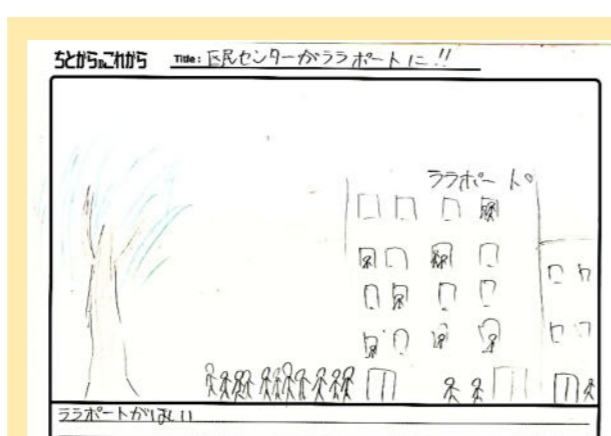 ちとからのこれから Title: 区民センターがララポートに!!
ララポート
ララポートがほしい